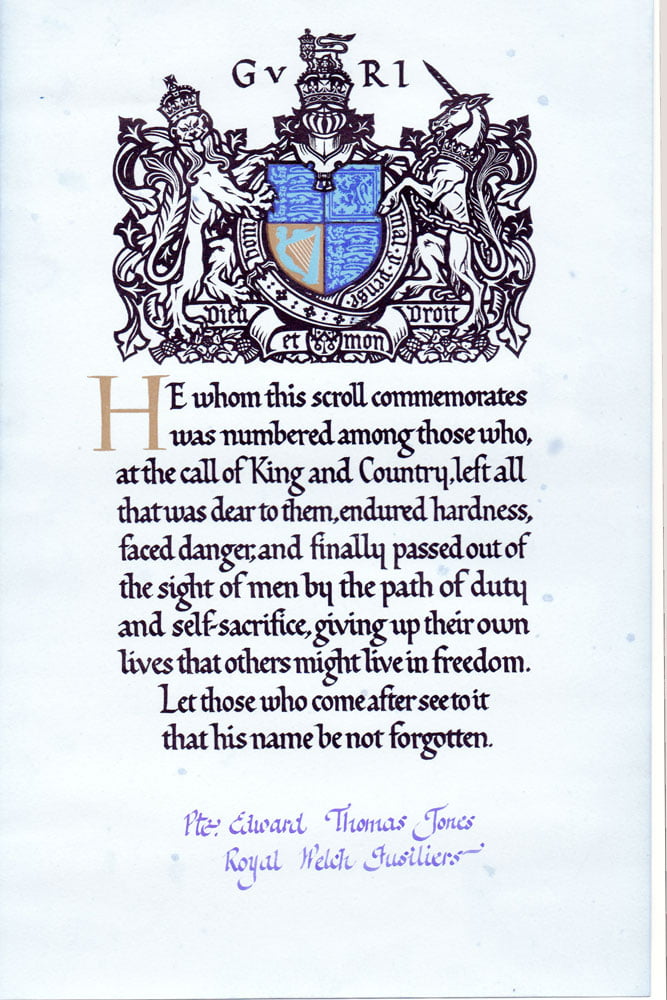 GV RI
Honi mal-y-pense
Dieu et mon Droit
HE whom this scroll commemorates
was numbered among those who,
at the call of King and Country, left all
that was dear to them, endured hardness,
faced danger, and finally passed out of
the sight of men by the path of duty
and self-sacrifice, giving up their own
lives that others might live in freedom.
Let those who come after see to it
that his name be not forgotten.
Pte. Edward Thomas Jones
Royal Welch Fusiliers